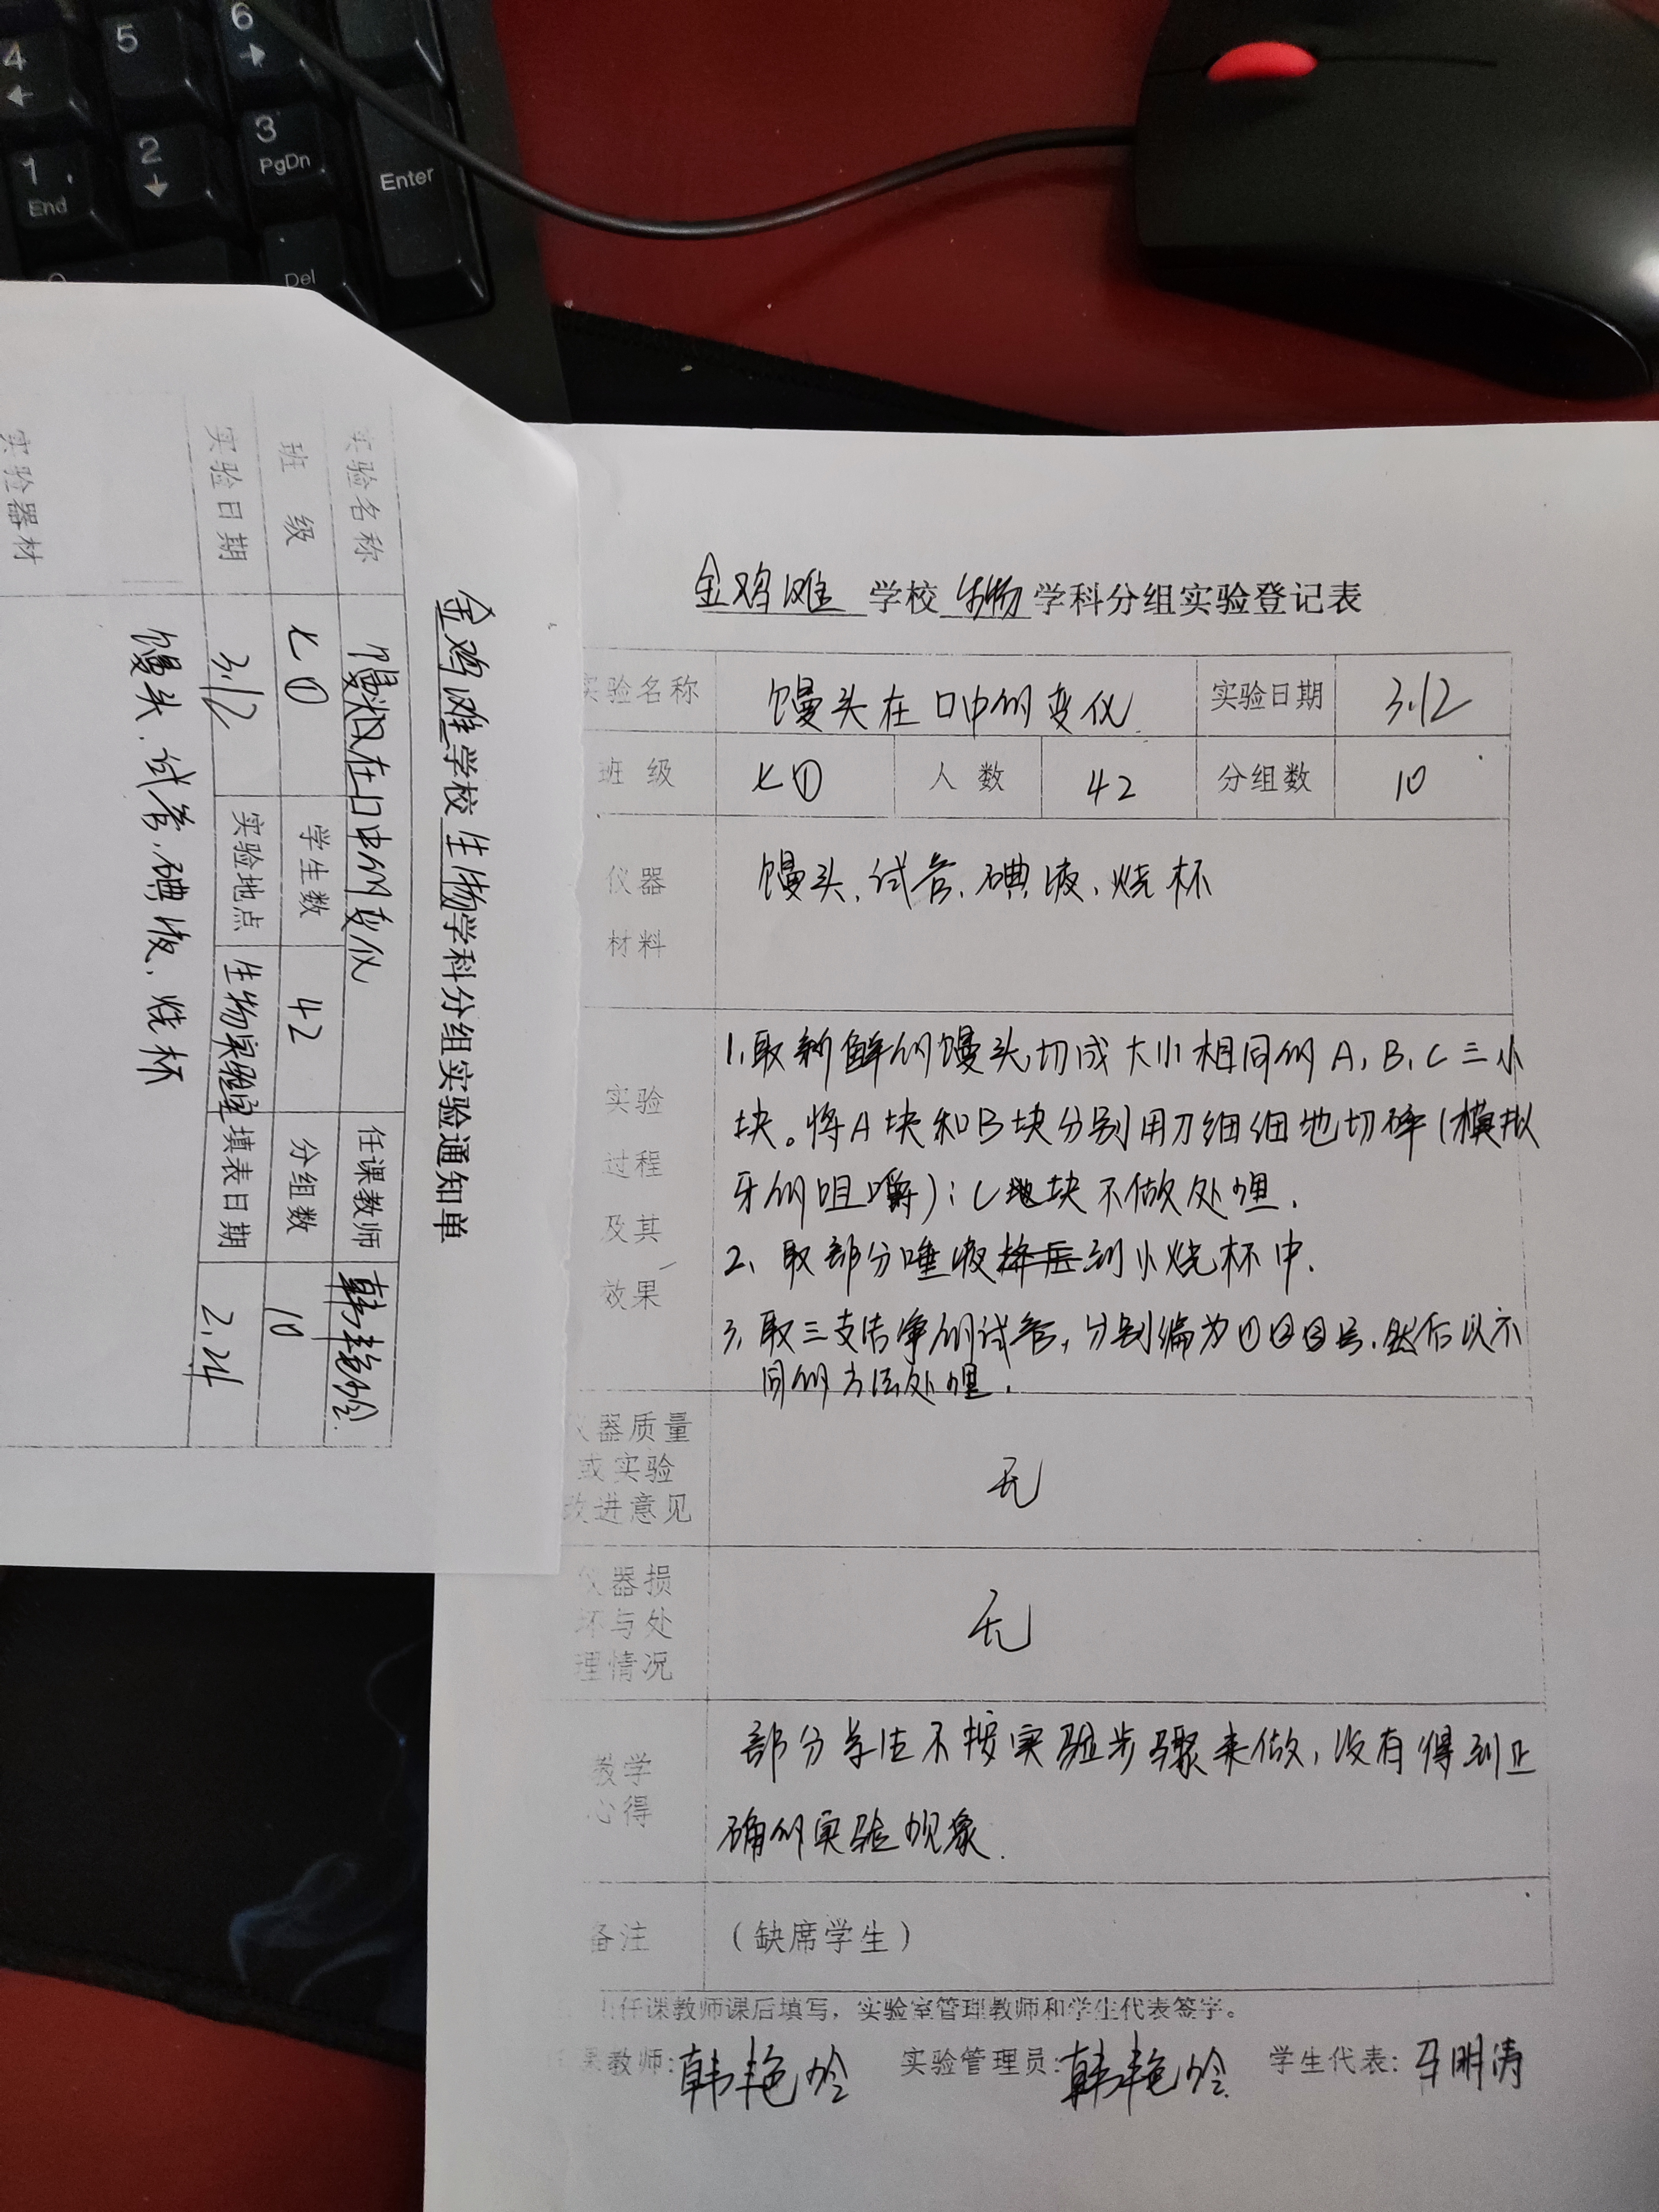 4
5
6
1
End
2
3
PgDn
Enter
Del
金鸡滩学校生物学科分组实验通知单
实验名称 馒头在口中的变化 任课教师 韩艳玲
班 级 七① 学生数 42 分组数 10
实验日期 3.12 实验地点 生物实验室 填表日期 2.24
实验器材 馒头、试管、碘液、烧杯
金鸡滩 学校 生物 学科分组实验登记表
实验名称 馒头在口中的变化 实验日期 3.12
班 级 七① 人 数 42 分组数 10
仪器
材料
馒头、试管、碘液、烧杯
实验
过程
及其
效果
1、取新鲜的馒头,切成大小相同的A、B、C三小
块。将A块和B块分别用刀细细地切碎(模拟
牙的咀嚼);C块不做处理.
2、取部分唾液到小烧杯中.
3、取三支洁净的试管,分别编为①②③号.然后以不
同的方法处理.
仪器质量
或实验
改进意见
无
仪器损
坏与处
理情况
无
教学
心得
部分学生不按实验步骤来做,没有得到正
确的实验现象.
备注 (缺席学生)
任课教师课后填写,实验室管理教师和学生代表签字。
课教师:韩艳玲 实验管理员:韩艳玲 学生代表:明涛